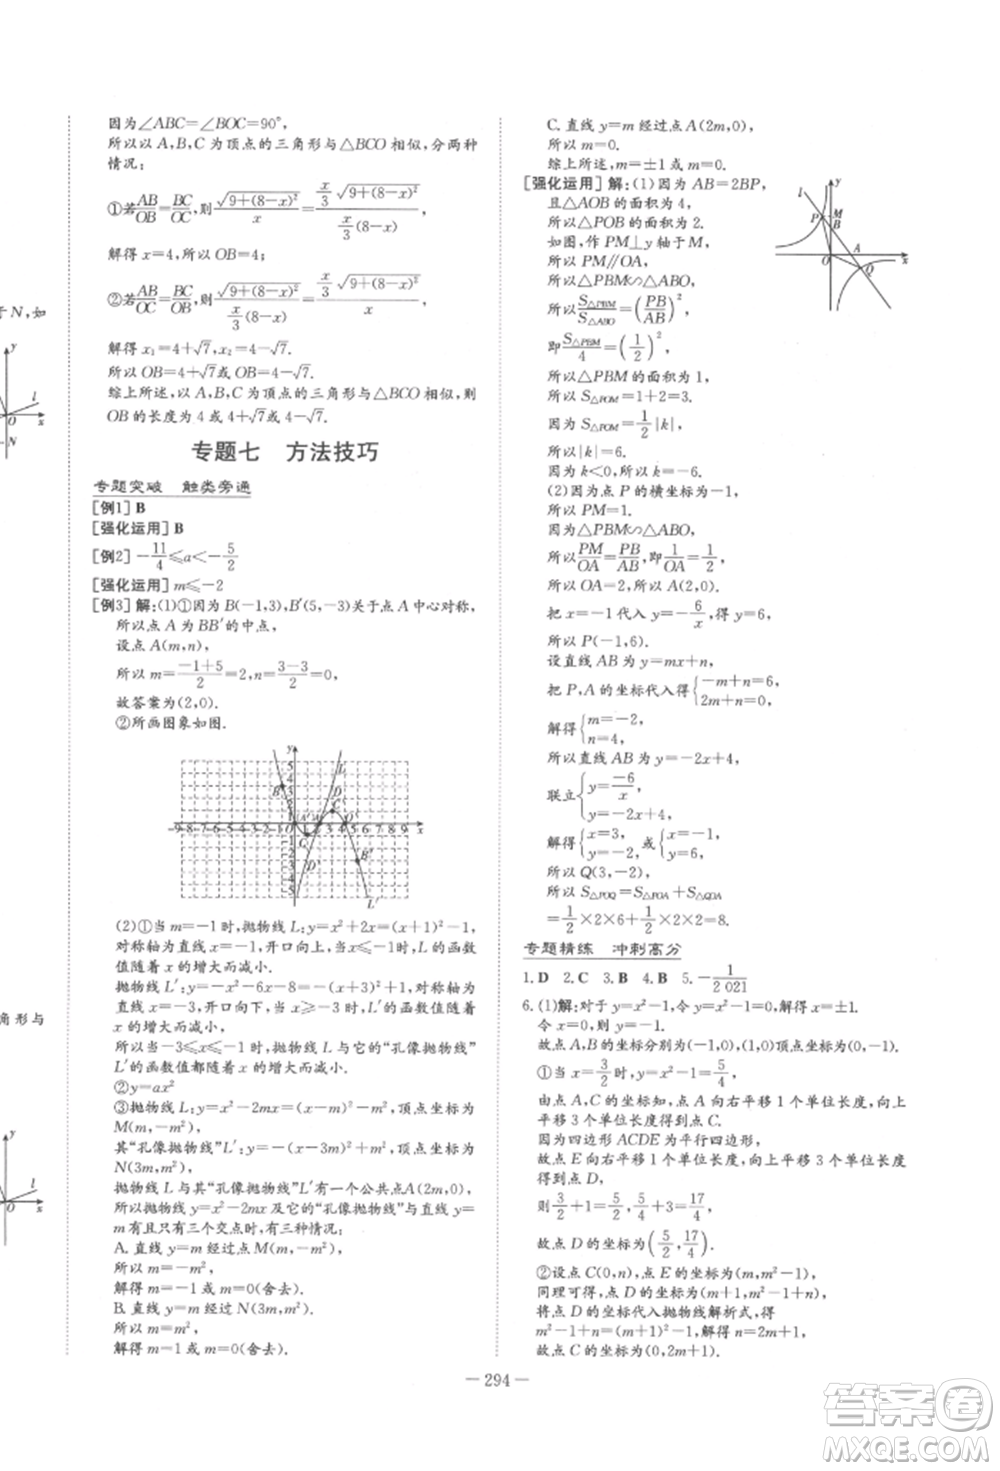 因为∠ABC=∠BOC=90°,
所以以 A,B,C 为顶点的三角形与△BCO 相似,分两种
情况:
①若AB/OB=BC/OC,则√(9+(8-x)²)/x=(x/3)√(9+(8-x)²)/((x/3)(8-x)),
解得 x=4,所以 OB=4;
②若AB/OC=BC/OB,则√(9+(8-x)²)/((x/3)(8-x))=(x/3)√(9+(8-x)²)/x,
解得 x₁=4+√7,x₂=4-√7.
所以 OB=4+√7或 OB=4-√7.
综上所述,以 A,B,C 为顶点的三角形与△BCO 相似,则
OB 的长度为 4 或 4+√7或 4-√7.
专题七 方法技巧
专题突破 触类旁通
[例1] B
[强化运用] B
[例2] -11/4≤a<-5/2
[强化运用] m≤-2
[例3] 解:(1)①因为 B(-1,3),B′(5,-3)关于点 A 中心对称,
所以点 A 为 BB′的中点,
设点 A(m,n),
所以 m=(-1+5)/2=2,n=(3-3)/2=0,
故答案为(2,0).
②所画图象如图.
(2)①当 m=-1 时,抛物线 L:y=x²+2x=(x+1)²-1,
对称轴为直线 x=-1,开口向上,当 x≤-1 时,L 的函数
值随着 x 的增大而减小.
抛物线 L′:y=-x²-6x-8=-(x+3)²+1,
对称轴为直线 x=-3,开口向下,当 x≥-3 时,L′的函数值随着
x 的增大而减小,
所以当-3≤x≤-1 时,抛物线 L 与它的“孔像抛物线”
L′的函数值都随着 x 的增大而减小.
②y=ax²
③抛物线 L:y=x²-2mx=(x-m)²-m²,顶点坐标为
M(m,-m²),
其“孔像抛物线”L′:y=-(x-3m)²+m²,顶点坐标为
N(3m,m²),
抛物线 L 与其“孔像抛物线”L′有一个公共点A(2m,0),
所以抛物线 L:y=x²-2mx与其“孔像抛物线”L′与直线
y=m 有且只有三个交点时,有三种情况:
A. 直线 y=m 经过点 M(m,-m²),
所以 m=-m²,
解得 m=-1 或 m=0(舍去).
B. 直线 y=m 经过 N(3m,m²),
所以 m=m²,
解得 m=1 或 m=0(舍去).
C. 直线 y=m 经过点 A(2m,0),
所以 m=0.
综上所述,m=±1 或 m=0.
[强化运用] 解:(1)因为 AB=2BP,
且△AOB 的面积为 4,
所以△POB 的面积为 2,
如图,作 PM⊥y 轴于 M,
所以 PM∥OA,
所以△PBM∽△ABO,
所以S△PBM/S△ABO=(PB/AB)²,
即S△PBM/4=(1/2)²,
所以△PBM 的面积为 1,
所以 S△POM=1+2=3.
因为 S△POM=1/2|k|,
所以|k|=6.
因为 k<0,所以 k=-6.
(2)因为点 P 的横坐标为-1,
所以 PM=1.
因为△PBM∽△ABO,
所以PM/OA=PB/AB,即1/OA=1/2,
所以 OA=2,所以 A(2,0).
把 x=-1代入 y=-6/x,得 y=6,
所以 P(-1,6).
设直线 AB 为 y=mx+n,
把 P,A 的坐标代入得{-m+n=6, 2m+n=0,
解得{m=-2, n=4,
所以直线 AB 为 y=-2x+4,
联立{y=-6/x, y=-2x+4,
解得{x=3, y=-2或{x=-1, y=6,
所以 Q(3,-2),
所以 S△POQ=S△POA+S△QOA
=1/2×2×6+1/2×2×2=8.
专题精练 冲刺高分
1. D 2. C 3. B 4. B 5. -1/2 021
6. (1)解:对于 y=x²-1,令 y=x²-1=0,解得 x=±1.
令 x=0,则 y=-1.
故点 A,B 的坐标分别为(-1,0),(1,0),顶点坐标为
(0,-1).
①当 x=3/2时,y=x²-1=5/4,
由点 A,C 的坐标知,点 A 向右平移 1 个单位长度,向上
平移 3 个单位长度得到点 C.
因为四边形 ACDE 为平行四边形,
故点 E 向右平移 1 个单位长度,向上平移 3 个单位长度
得到点 D,
则3/2+1=5/2,5/4+3=17/4,
故点 D 的坐标为(5/2,17/4).
②设点 C(0,n),点 E 的坐标为(m,m²-1),
同理可得,点 D 的坐标为(m+1,m²-1+n),
将点 D 的坐标代入抛物线解析式得
m²-1+n=(m+1)²-1,解得 n=2m+1,
故点 C 的坐标为(0,2m+1).
— 294 —
于 N,如
y
l
O
x
N
角形与
y
O
x
答案圈
MXQE.COM